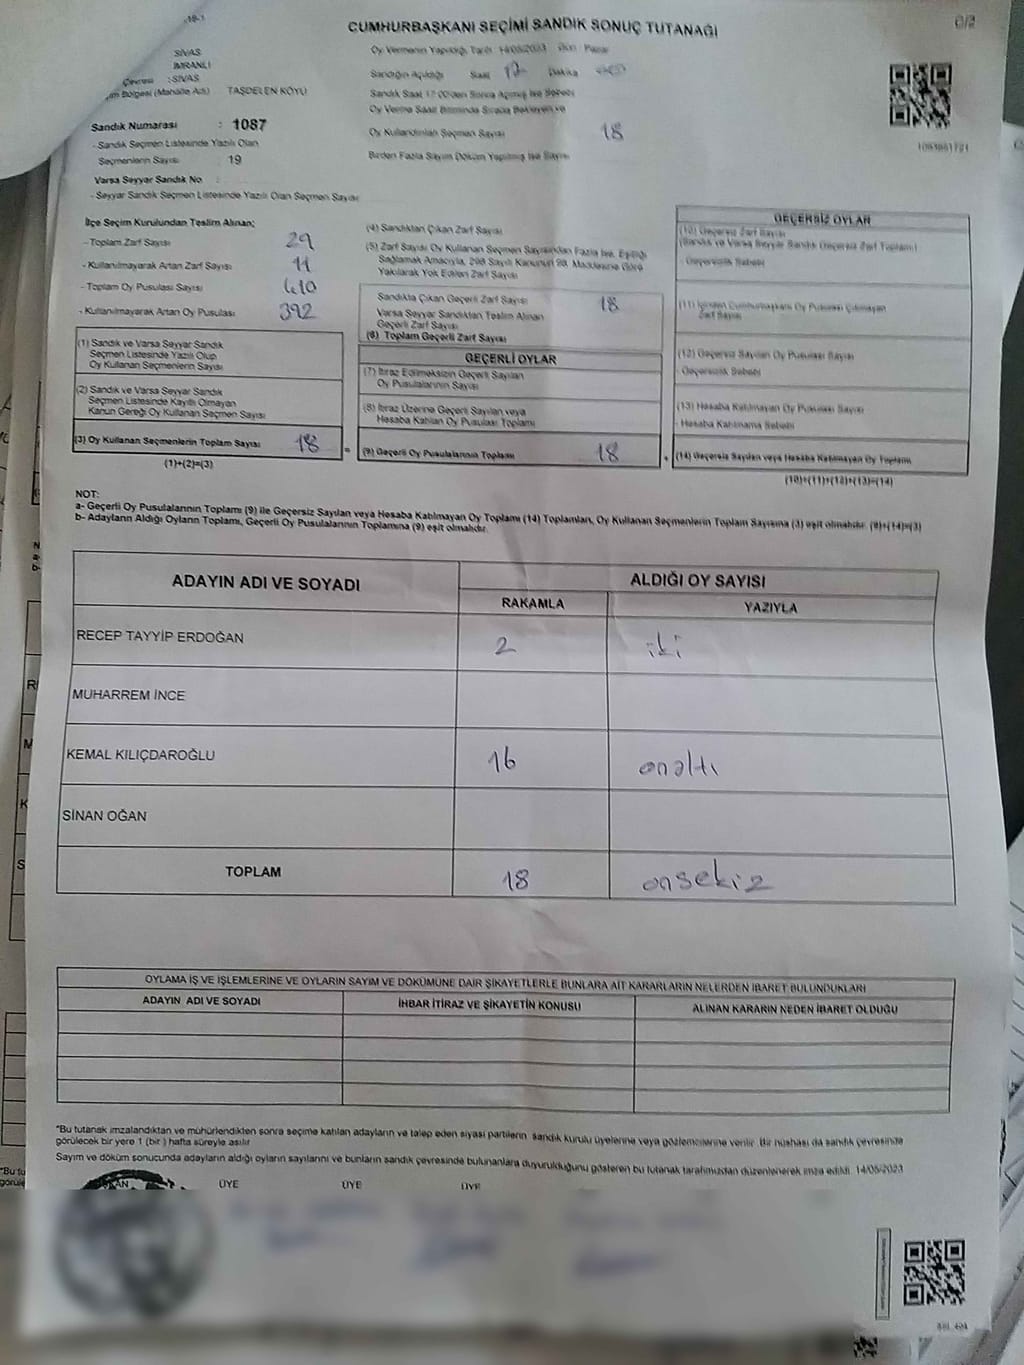 CUMHURBAŞKANI SEÇİMİ SANDIK SONUÇ TUTANAĞI
SİVAS
İMRANLI
Çevresi : SİVAS
Bölgesi (Mahalle Adı) TAŞDELEN KÖYÜ
Sandık Numarası : 1087
- Sandık Seçmen Listesinde Yazılı Olan
Seçmenlerin Sayısı : 19
Varsa Seyyar Sandık No :
- Seyyar Sandık Seçmen Listesinde Yazılı Olan Seçmen Sayısı
Oy Vermenin Yapıldığı Tarih 14/05/2023 Gün : Pazar
Sandığın Açıldığı Saat 17 Dakika
Sandık Saat 17:00'den Sonra Açılmış İse Sebebi
Oy Verme Saati Bitiminde Sırada Bekleyen ve
Oy Kullandırılan Seçmen Sayısı 18
Birden Fazla Sayım Döküm Yapılmış İse Sayısı
İlçe Seçim Kurulundan Teslim Alınan;
- Toplam Zarf Sayısı 29
- Kullanılmayarak Artan Zarf Sayısı 11
- Toplam Oy Pusulası Sayısı 410
- Kullanılmayarak Artan Oy Pusulası 392
(1) Sandık ve Varsa Seyyar Sandık
Seçmen Listesinde Yazılı Olup
Oy Kullanan Seçmenlerin Sayısı
(2) Sandık ve Varsa Seyyar Sandık
Seçmen Listesinde Kayıtlı Olmayan
Kanun Gereği Oy Kullanan Seçmen Sayısı
(3) Oy Kullanan Seçmenlerin Toplam Sayısı 18 =
(1)+(2)=(3)
(4) Sandıktan Çıkan Zarf Sayısı
(5) Zarf Sayısı Oy Kullanan Seçmen Sayısından Fazla İse, Eşitliği
Sağlamak Amacıyla, 298 Sayılı Kanunun 98. Maddesine Göre
Yakılarak Yok Edilen Zarf Sayısı
Sandıkta Çıkan Geçerli Zarf Sayısı 18
Varsa Seyyar Sandıktan Teslim Alınan
Geçerli Zarf Sayısı
(6) Toplam Geçerli Zarf Sayısı
GEÇERLİ OYLAR
(7) İtiraz Edilmeksizin Geçerli Sayılan
Oy Pusulalarının Sayısı
(8) İtiraz Üzerine Geçerli Sayılan veya
Hesaba Katılan Oy Pusulası Toplamı
(9) Geçerli Oy Pusulalarının Toplamı 18 +
GEÇERSİZ OYLAR
(10) Geçersiz Zarf Sayısı
(Sandık ve Varsa Seyyar Sandık Geçersiz Zarf Toplamı)
- Geçersizlik Sebebi
(11) İçinden Cumhurbaşkanı Oy Pusulası Çıkmayan
Zarf Sayısı
(12) Geçersiz Sayılan Oy Pusulası Sayısı
- Geçersizlik Sebebi
(13) Hesaba Katılmayan Oy Pusulası Sayısı
- Hesaba Katılmama Sebebi
(14) Geçersiz Sayılan veya Hesaba Katılmayan Oy Toplamı
(10)+(11)+(12)+(13)=(14)
NOT:
a- Geçerli Oy Pusulalarının Toplamı (9) ile Geçersiz Sayılan veya Hesaba Katılmayan Oy Toplamı (14) Toplamları, Oy Kullanan Seçmenlerin Toplam Sayısına (3) eşit olmalıdır. (9)+(14)=(3)
b- Adayların Aldığı Oyların Toplamı, Geçerli Oy Pusulalarının Toplamına (9) eşit olmalıdır.
ADAYIN ADI VE SOYADI ALDIĞI OY SAYISI
RAKAMLA YAZIYLA
RECEP TAYYİP ERDOĞAN 2 iki
MUHARREM İNCE
KEMAL KILIÇDAROĞLU 16 onaltı
SİNAN OĞAN
TOPLAM 18 onsekiz
OYLAMA İŞ VE İŞLEMLERİNE VE OYLARIN SAYIM VE DÖKÜMÜNE DAİR ŞİKAYETLERLE BUNLARA AİT KARARLARIN NELERDEN İBARET BULUNDUKLARI
ADAYIN ADI VE SOYADI İHBAR İTİRAZ VE ŞİKAYETİN KONUSU ALINAN KARARIN NEDEN İBARET OLDUĞU
*Bu tutanak imzalandıktan ve mühürlendikten sonra seçime katılan adayların ve talep eden siyasi partilerin sandık kurulu üyelerine veya gözlemcilerine verilir. Bir nüshası da sandık çevresinde
görülecek bir yere 1 (bir) hafta süreyle asılır.
Sayım ve döküm sonucunda adayların aldığı oyların sayılarını ve bunların sandık çevresinde bulunanlara duyurulduğunu gösteren bu tutanak tarafımızdan düzenlenerek imza edildi. 14/05/2023
ÜYE ÜYE ÜYE